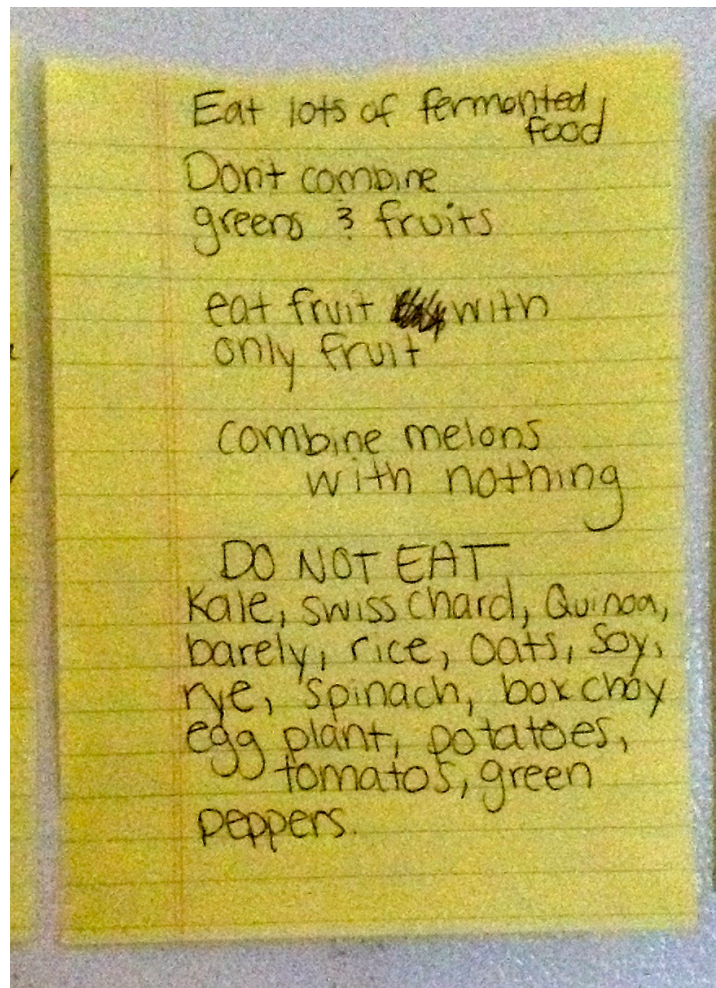 Eat lots of fermented
food
Don't combine
greens & fruits
eat fruit with
only fruit
combine melons
with nothing
DO NOT EAT
Kale, swiss chard, Quinoa,
barely, rice, oats, soy,
rye, spinach, box choy
egg plant, potatoes,
tomatos, green
peppers.